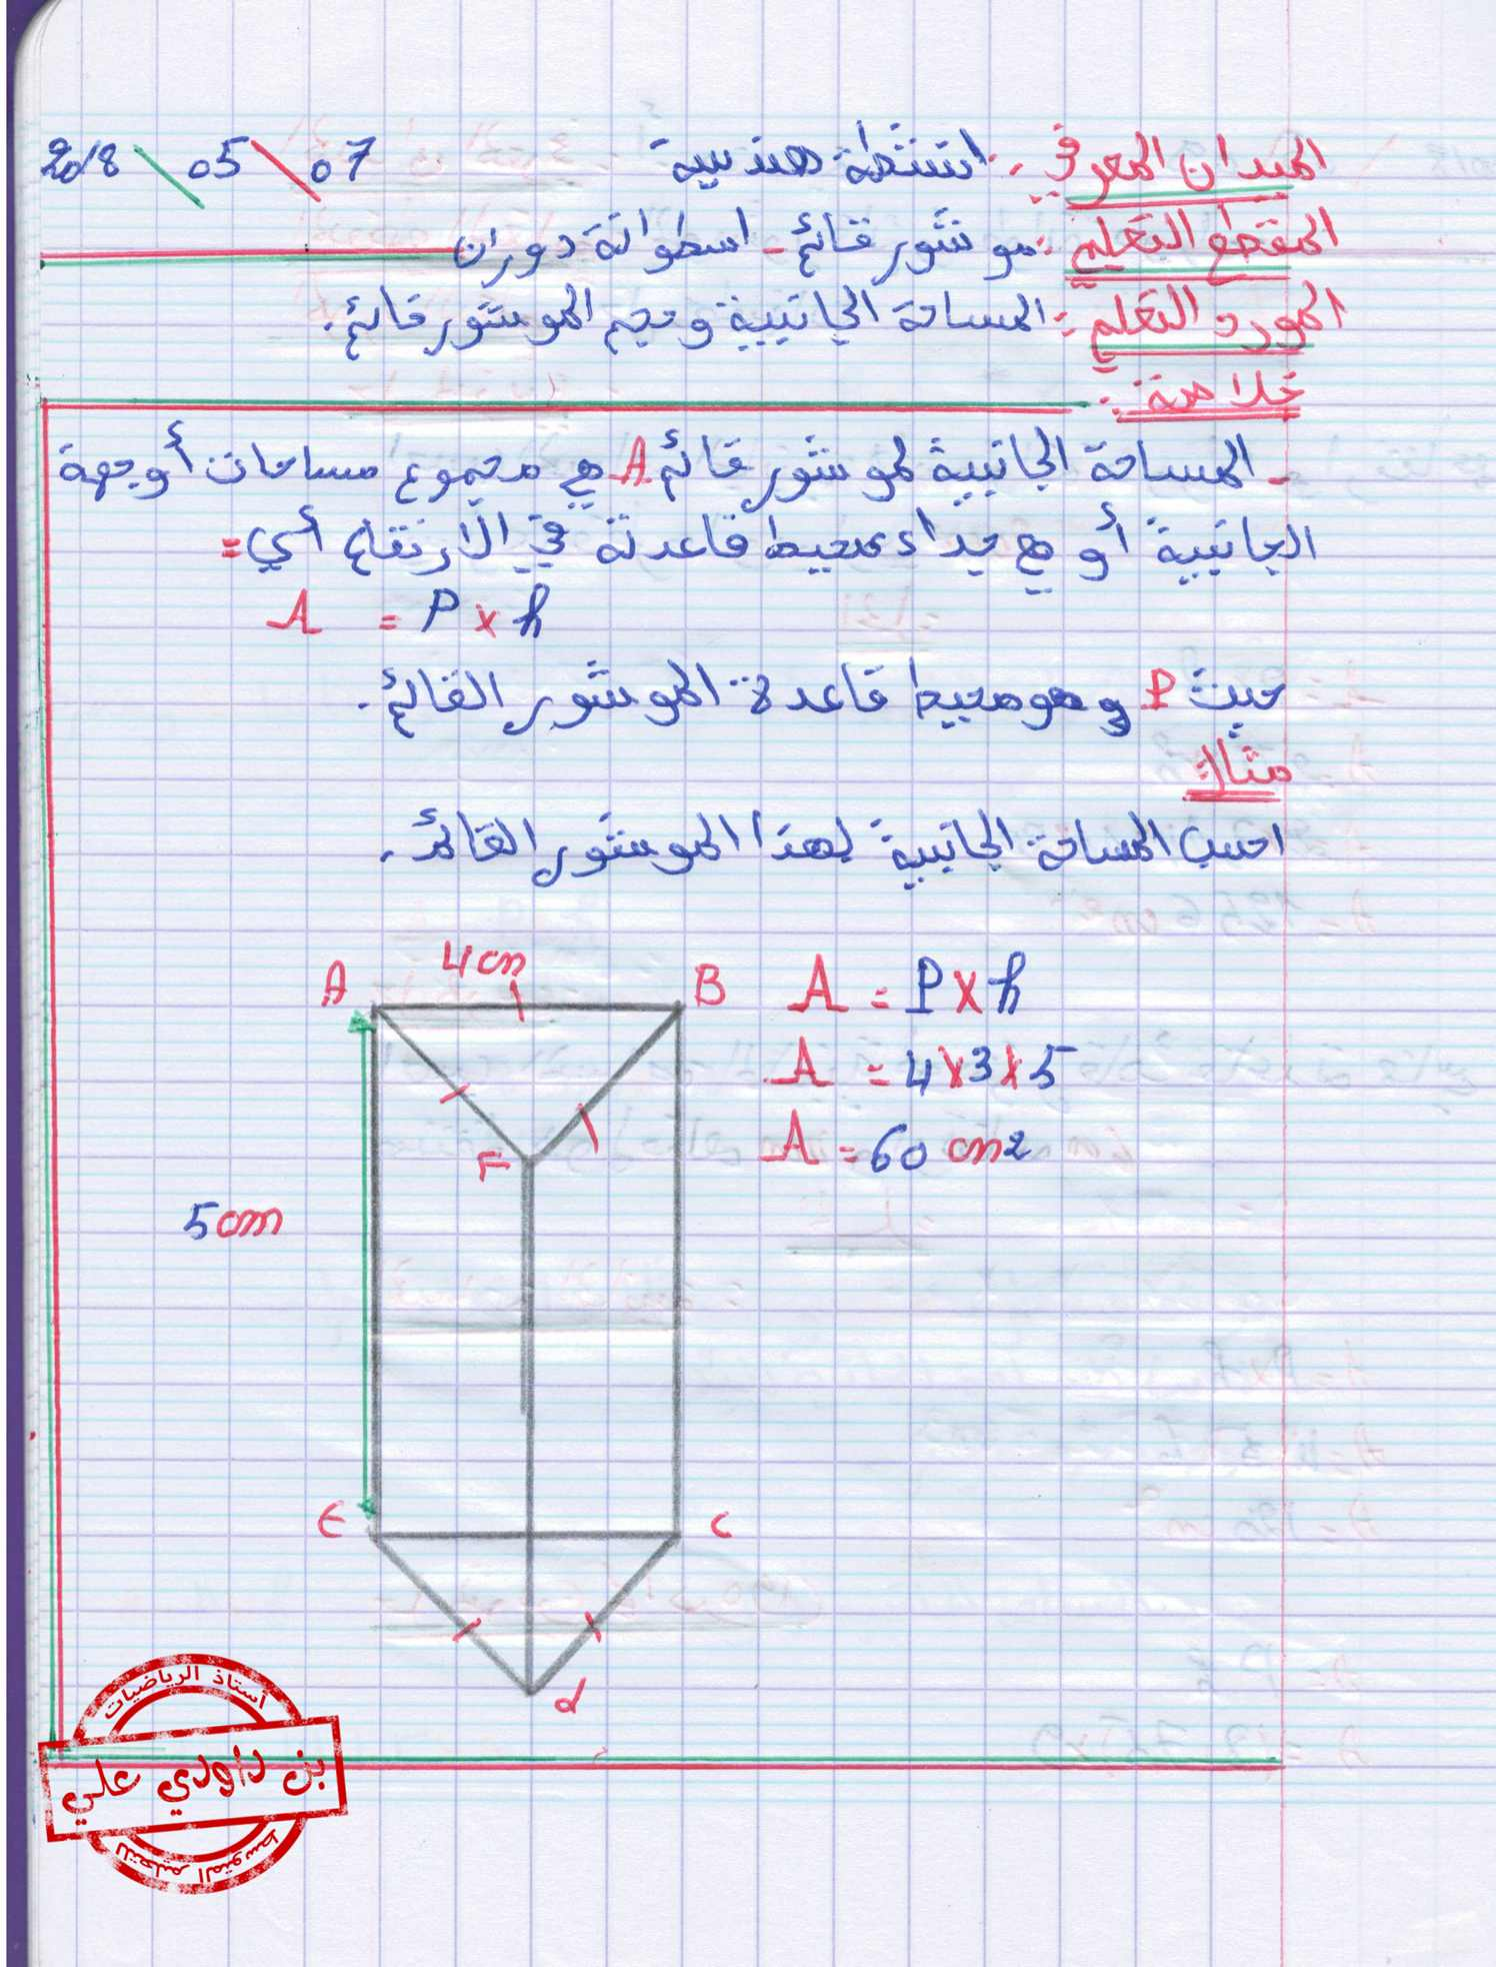 الميدان المعرفي : انشطة هندسية 07 \ 05 \ 2018
المقطع التعلمي : موشور قائم - اسطوانة دوران
المورد التعلمي : المساحة الجانبية وحجم الموشور قائم.
خلاصة :
- المساحة الجانبية لموشور قائم A هي مجموع مساحات أوجهة
الجانبية أو هي جداء محيط قاعدته في الارتفاع أي =
A = P x h
حيث P وهو محيط قاعدة الموشور القائم.
مثال:
احسب المساحة الجانبية لهذا الموشور القائم.
A 4cm B
A = P x h
A = 4 x 3 x 5
A = 60 cm2
F
5cm
E C
d
أستاذ الرياضيات
بن داودي علي
للتعليم المتوسط